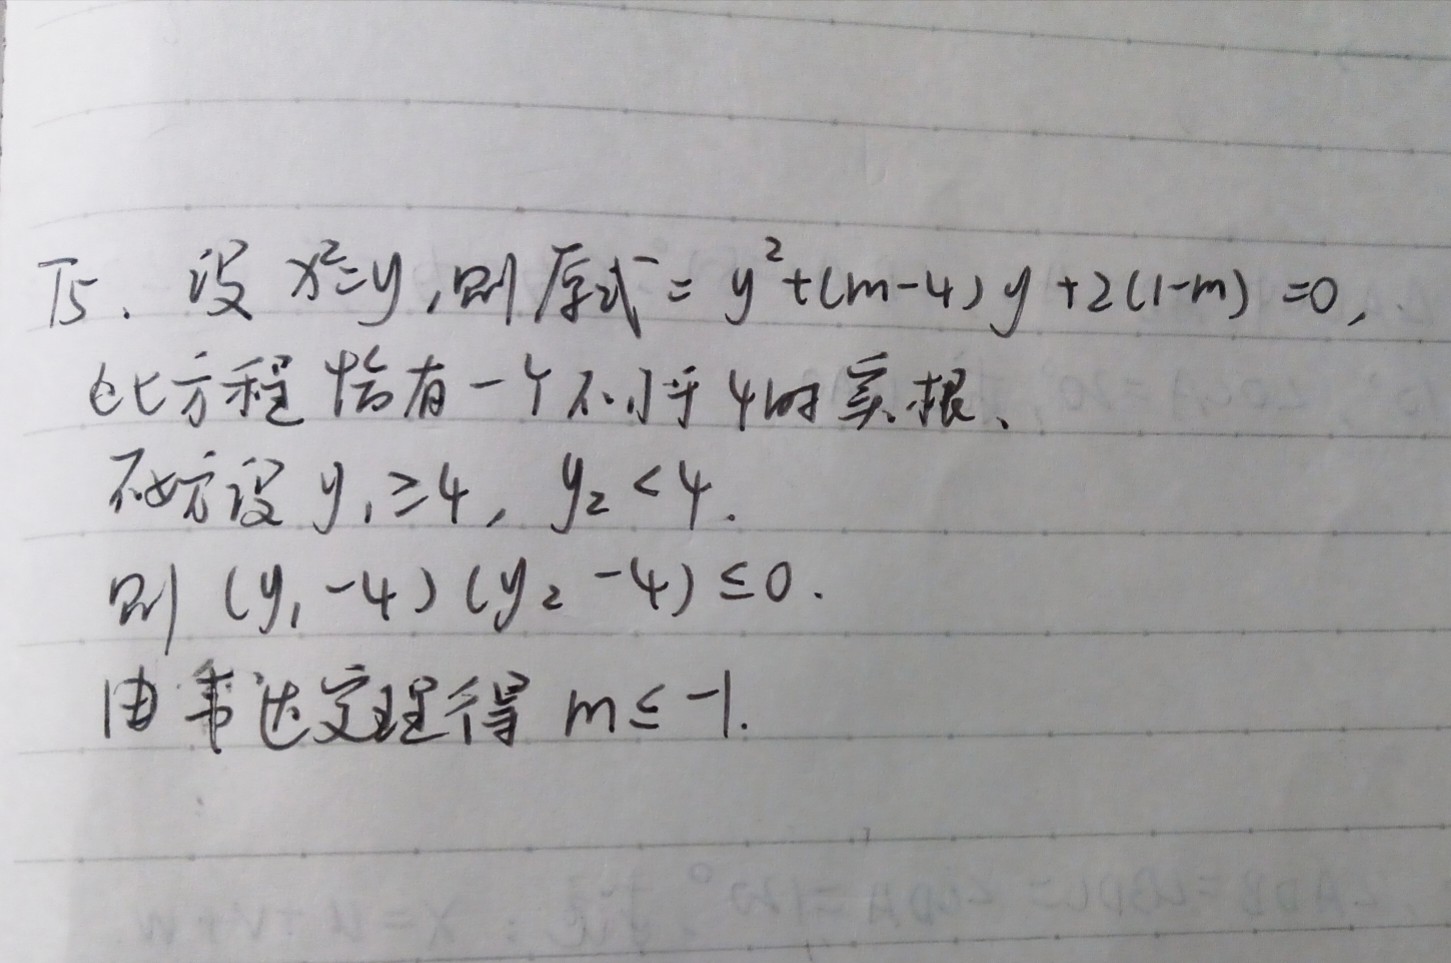 T5. 设 x²=y,则原式= y²+(m-4)y+2(1-m)=0,
此方程恰有一个不小于4的实根、
不妨设 y₁≥4, y₂<4.
则 (y₁-4)(y₂-4)≤0.
由韦达定理得 m≤-1.